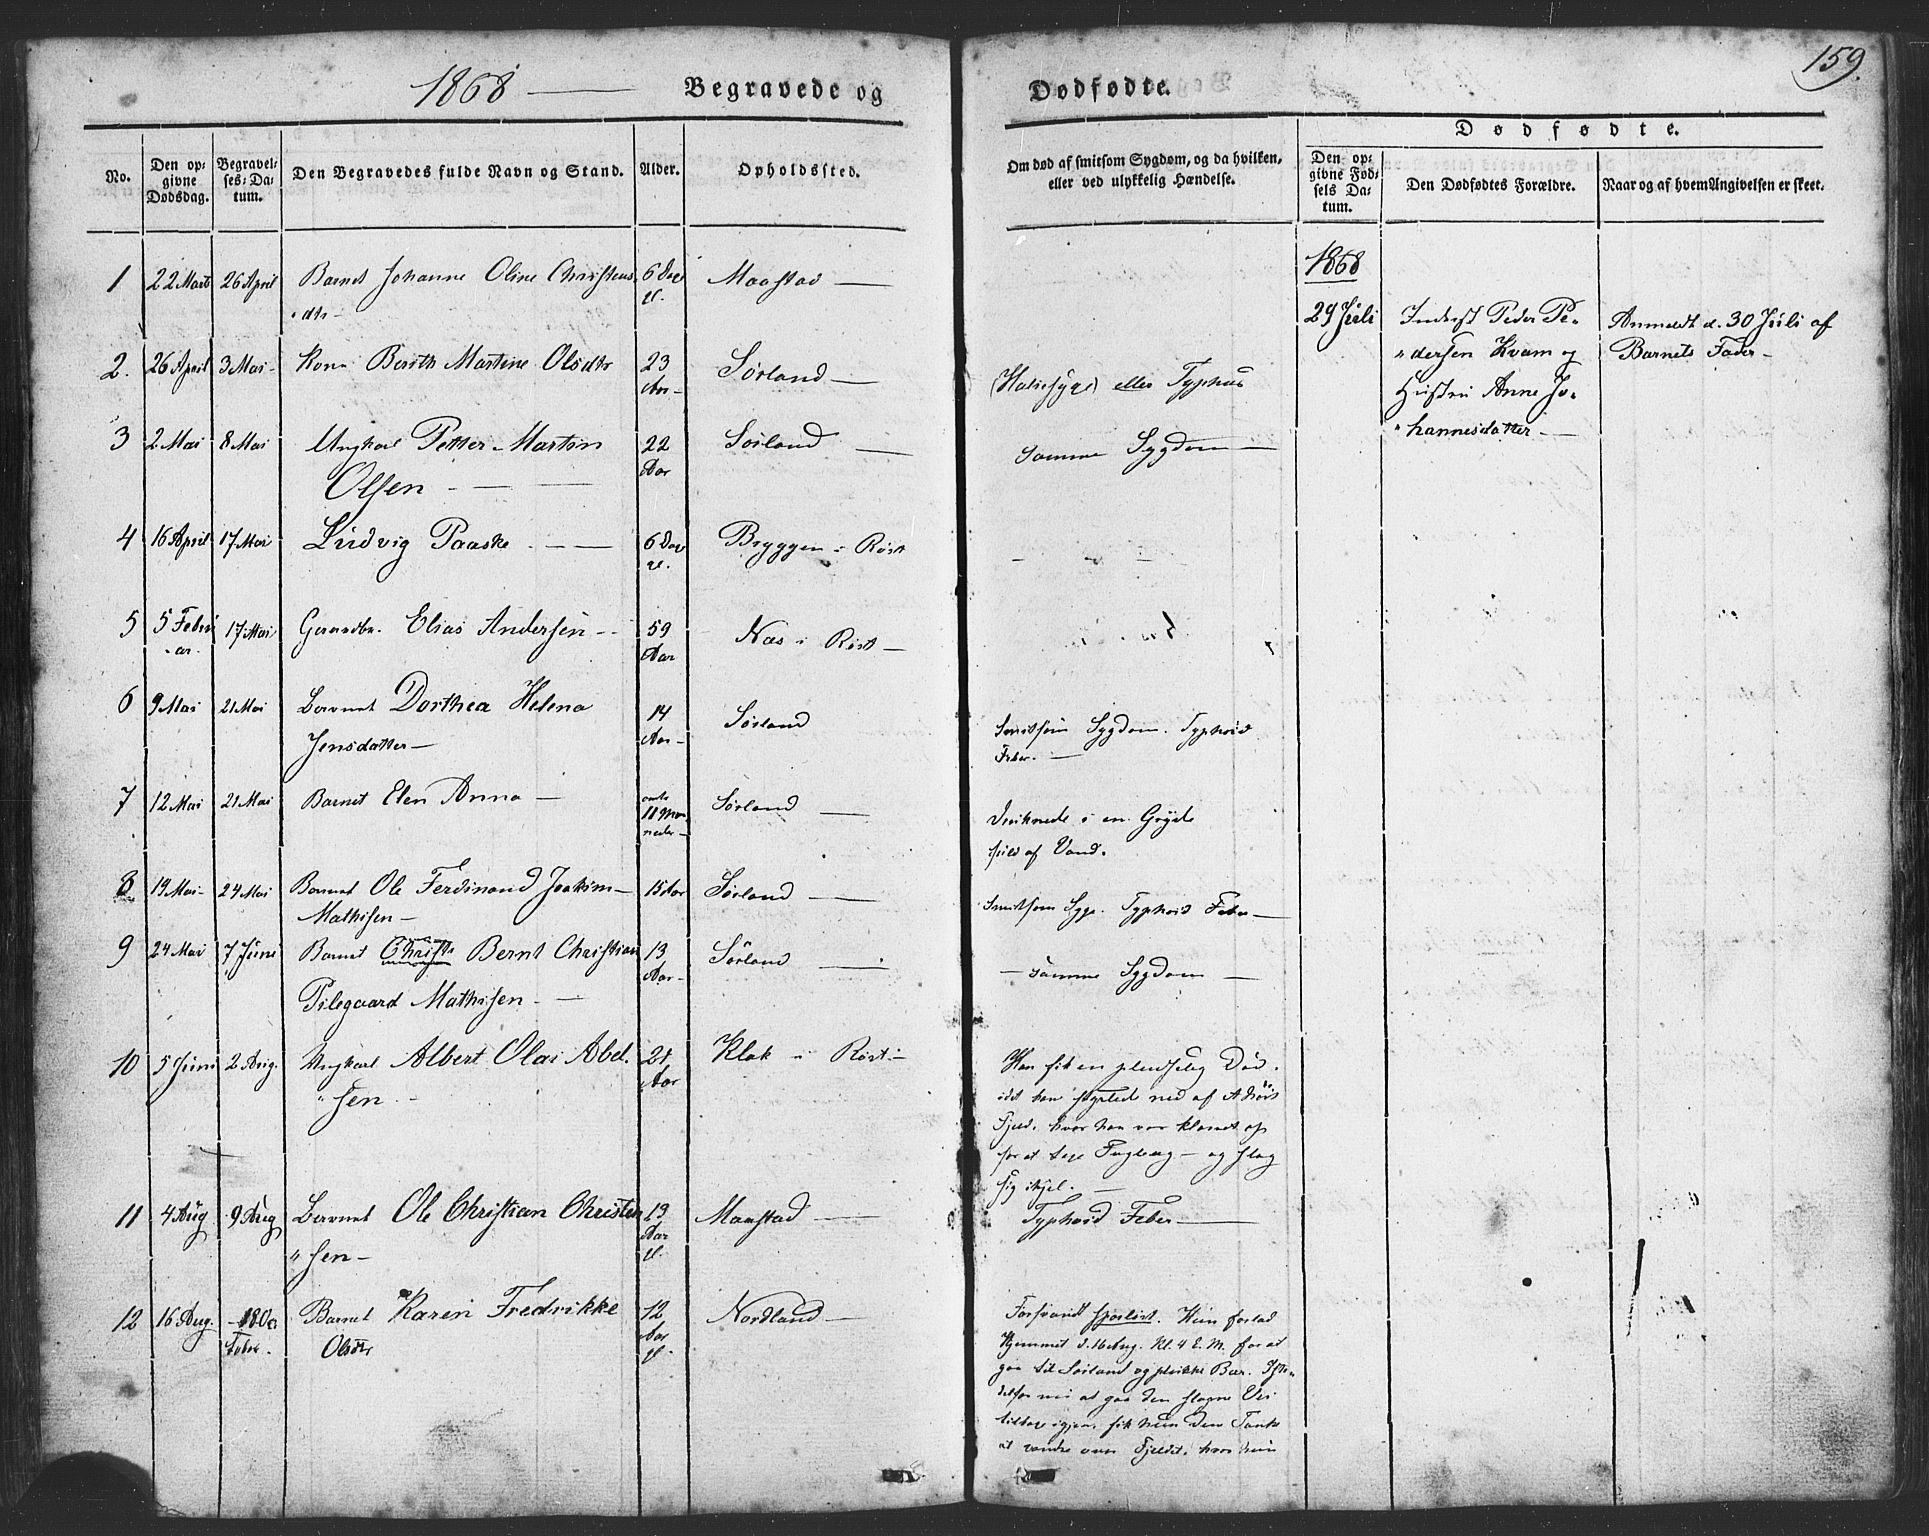 1868 — Begravede og Dødfødte. 159.
No.
Den opgivne Dødsdag.
Begravelses-Datum.
Den Begravedes fulde Navn og Stand.
Alder.
Opholdssted.
Om død af smitsom Sygdom, og da hvilken, eller ved ulykkelig Hændelse.
Dødfødte.
Den opgivne Fødsels Datum.
Den Dødfødtes Forældre.
Naar og af hvem Angivelsen er skeet.
1 22 Marts 26 April Barnet Johanne Oline Christens 6 Dage Maastad —
" dtr —
2. 26 April 3 Mai - Kone Berith Martine Olsdtr 23 Sørland —
Aar — (Halssyge) eller Typhus
3 2 Mai 8 Mai Ungkarl Petter Martin 22 Sørland — samme Sygdom —
Olsen — — Aar
4 16 April 17 Mai Ludvig Paaske — — 6 Dage Bryggen i Røst — —
5 5 Febru 17 Mai Gaardbr. Elias Andersen - - 59 Næs i Røst —
- ar. Aar
6 9 Mai 21 Mai Barnet Dorthea Helena 14 Sørland Smitsom Sygdom. Typhoid
Jensdatter — Aar - Feber. —
7 12 Mai 21 Mai Barnet Elen Anna — 11 Maaneder — Sørland — Druknede i en Gryde
fuld af Vand.
8 19 Mai - 24 Mai Barnet Ole Ferdinand Joakim — 15 Aar Sørland — Smitsom Syge. Typhoid Feber —
Mathisen —
9 24 Mai 7 Juni Barnet Christ Bernt Christian 13 Sørland — — samme Sygdom —
Pilegaard Mathisen - — Aar -
10 5 Juni 2 Aug. Ungkarl Albert Olai Abel. 21 Klak i Røst — Han fik en pludselig Død,
" sen. - Aar idet han styrtede ned af
Fjeld, hvor han var klavret op
for at tage Fugleæg — og slog
sig ihjel. —
11 4 Aug 9 Aug Barnet Ole Christian Christen 13 Maastad — Typhoid Feber —
" sen — Aar
12 16 Aug. Barnet Karen Fredrikke 12 Nordland — Forsvandt sporløst. Hun forlod
Olsdtr Aar Hjemmet d. 16 Aug. Kl. 4 E. M. for at
gaa til Sørland og plukke Bær. Iste-
detfor nu at gaa den slagne Vei
tilbage igjen, fik hun den Tanke
at vandre over Fjeldet, hvor hun
1868
29 Juli Inderst Peder Pe- Anmeldt d. 30 Juli af
" dersen Kvam og Barnets Fader —
Hustru Anne Jo-
" hannesdatter —